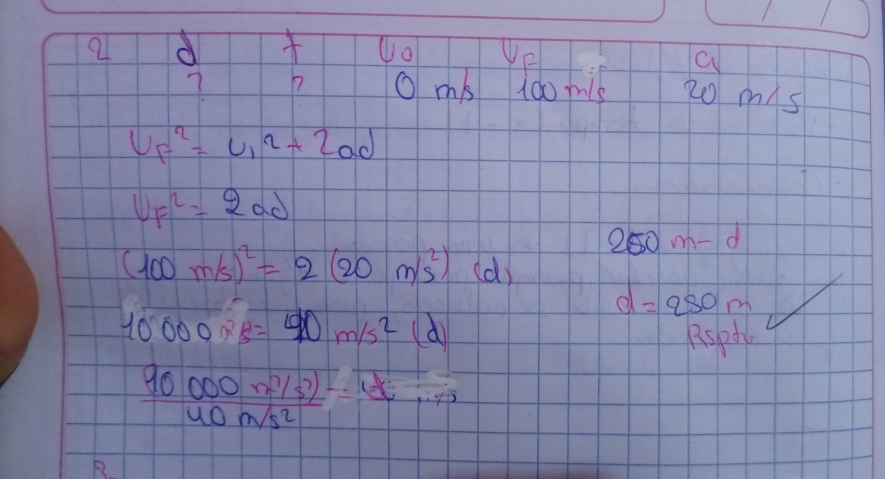 2 d t Uo VF a
? ? 0 m/s 100 m/s 20 m/s
VF² = U₁² + 2ad
VF² = 2ad
(100 m/s)² = 2 (20 m/s²) (d)
10 000 = 40 m/s² (d)
10 000 m²/s²) = d
40 m/s²
250 m - d
d = 250 m
Rspta